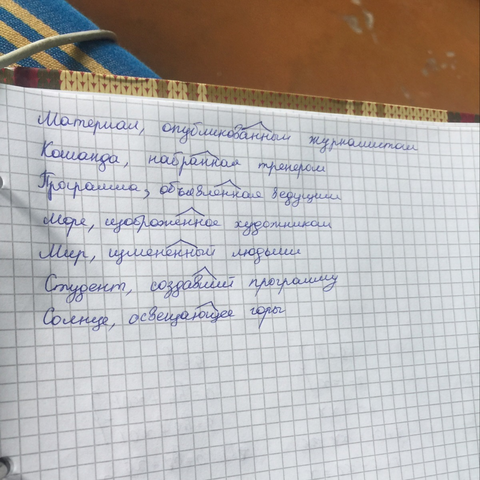 Материал, опубликованный журналистом
Команда, набранная тренером
Программа, объявленная ведущим
Море, изображённое художником
Мир, изменённый людьми
Студент, создавший программу
Солнце, освещающее горы